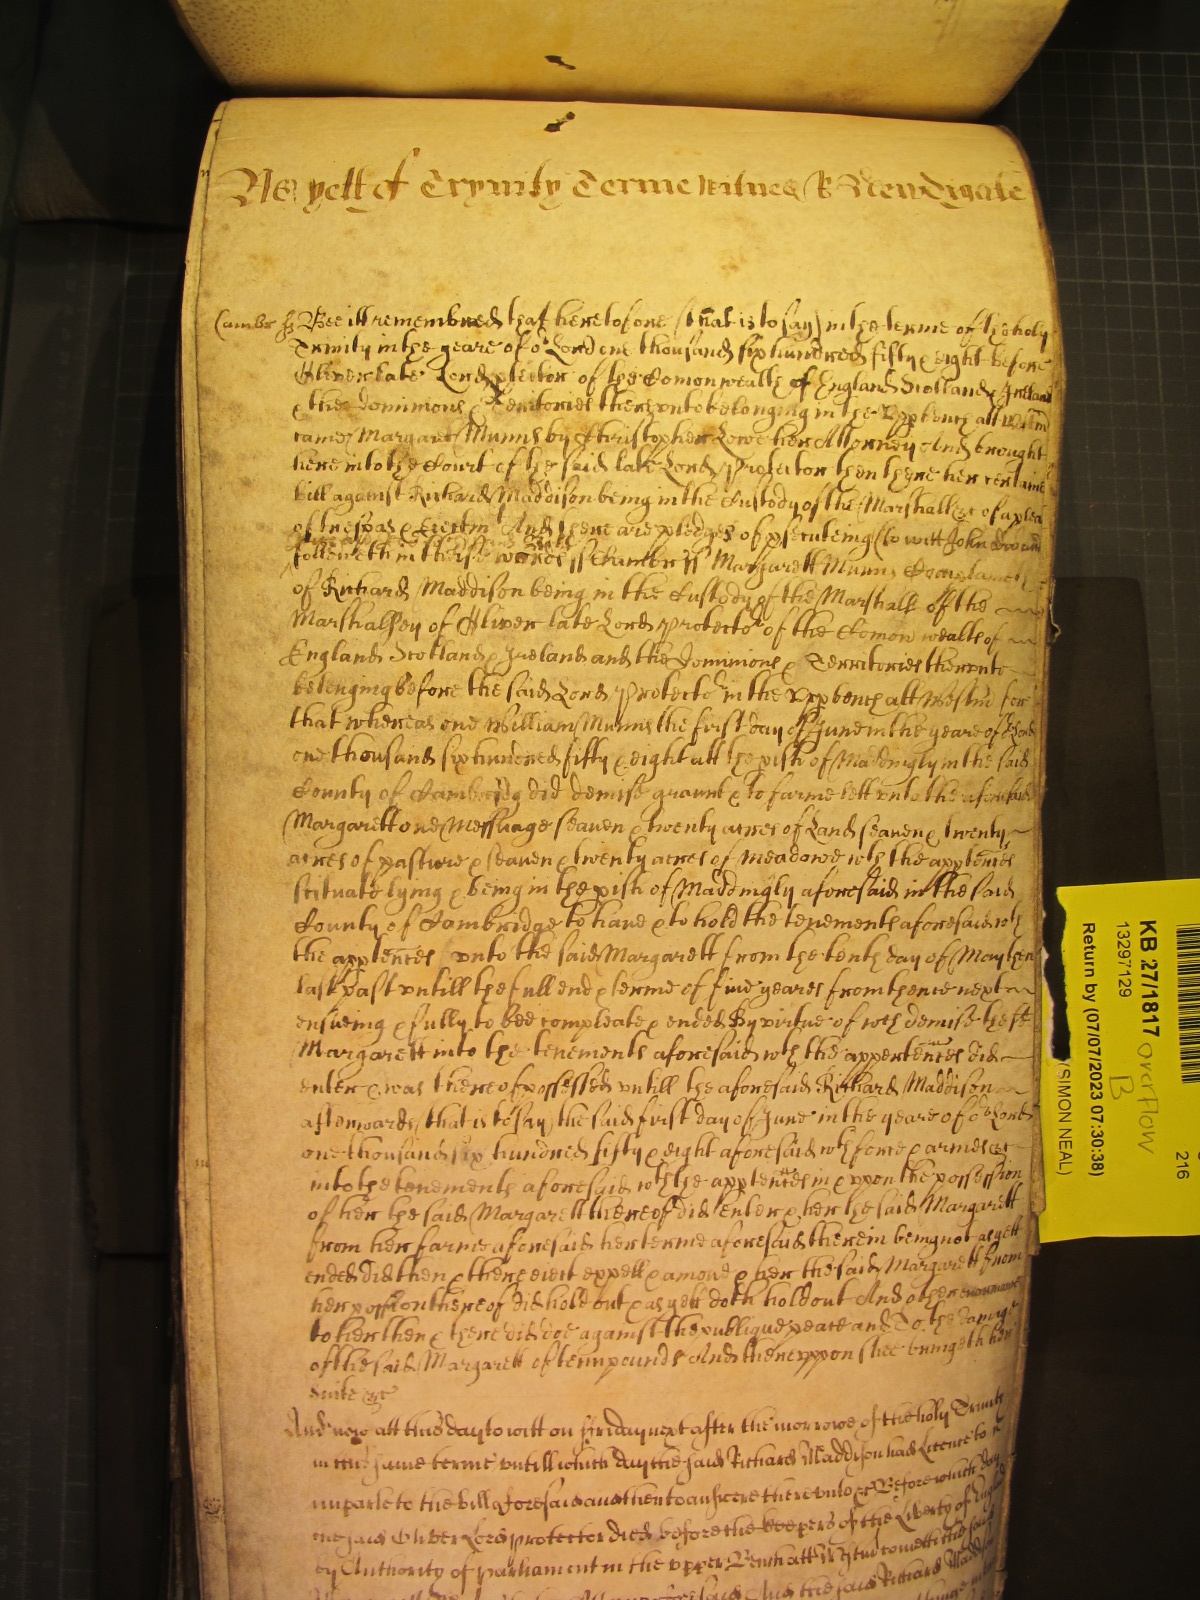 As yett of Trynity Terme witnes R Newdigate
Cambr ss Bee itt remembred that heretofore (that is to say) in the terme of the holy
Trinity in the yeare of or Lord one thousand six hundred fifty & eight before
Oliver late Lord ptector of the Comonwealth of England Scotland & Ireland
& the dominions & Territories thereunto belonging in the Upp bench att Westm
came Margarett Munns by Christopher Lowe her Attorney And brought
here into the Court of the said late Lord Protector then there her certaine
bill against Richard Maddison being in the Custody of the Marshall &c of a plea
of trespas & Eiectm And there are pledges of psecuteing (to witt John
followeth in theise words ss Cambr ss Margarett Munns Complaineth
of Richard Maddison being in the Custody of the Marshall of the
Marshalsey of Oliver late Lord Protector of the Comon wealth of
England Scotland & Ireland and the Dominions & Territories therunto
belonging before the said Lord Protector in the Upp bench att Westm for
that whereas one William Munns the first day of June in the yeare of or Lord
one thousand six hundred fifty & eight att the pish of Maddingly in the said
County of Cambridg did demise graunt & to farme lett unto the aforesaid
Margarett one Messuage seaven & twenty acres of Land seaven & twenty
acres of pasture & seaven & twenty acres of meadowe wth the apptences
scituate lying & being in the pish of Maddingly aforesaid in the said
County of Cambridge to have & to hold the tenements aforesaid wth
the apptences unto the said Margarett from the tenth day of May then
last past untill the full end & terme of five yeares from thence next
ensueing & fully to bee compleate & ended By virtue of wch demise the sd
Margarett into the tenements aforesaid wth the appertences did
enter & was thereof possessed untill the aforesaid Richard Maddison
afterwards (that is to say) the said first day of June in the yeare of or Lord
one thousand six hundred fifty & eight aforesaid wth force & armes &c
into the tenements aforesaid wth the apptences in & upon the possession
of her the said Margarett thereof did enter & her the said Margarett
from her farme aforesaid her terme aforesaid therein being not as yett
ended did then & there eiect expell & amove & her the said Margarett from
her possion thereof did hold out & as yett doth hold out And other enormities
to her then & there did doe against the publique peace and To the damage
of the said Margarett of tenn pounds And thereuppon shee bringeth her
suite &c
And now att this day to witt on Friday next after the morrowe of the holy Trinity
in this same terme untill which day the said Richard Maddison had Licence to
imparle to the bill aforesaid and then to answere thereunto &c Before which day
the said Oliver Lord Protector died before the keepers of the Liberty of England
by Authority of parliament in the upper Bench att Westm cometh the said
aforesaid And the said Richard Maddison
KB 27/1817 overflow
B
13297129
Return by (07/07/2023 07:30:38)
(SIMON NEAL)
216